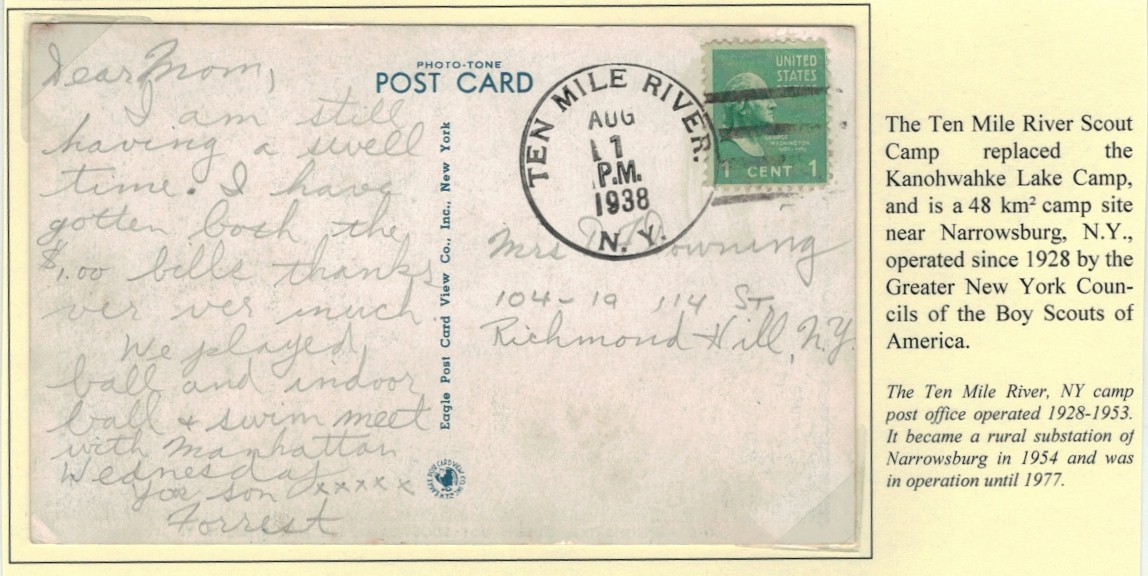 Dear Mom,
I am still
having a swell
time. I have
gotten both the
$1.00 bills thanks
ver ver much.
We played
ball and indoor
ball + swim meet
with Manhattan
Wednesday
Your son xxxxx
Forrest
PHOTO-TONE
POST CARD
Eagle Post Card View Co., Inc., New York
TEN MILE RIVER.
AUG
11
P.M.
1938
N. Y.
UNITED
STATES
WASHINGTON
1 CENT 1
Mrs Downing
104-19 114 ST
Richmond Hill, N.Y.
The Ten Mile River Scout
Camp replaced the
Kanohwahke Lake Camp,
and is a 48 km² camp site
near Narrowsburg, N.Y.,
operated since 1928 by the
Greater New York Coun-
cils of the Boy Scouts of
America.
The Ten Mile River, NY camp
post office operated 1928-1953.
It became a rural substation of
Narrowsburg in 1954 and was
in operation until 1977.